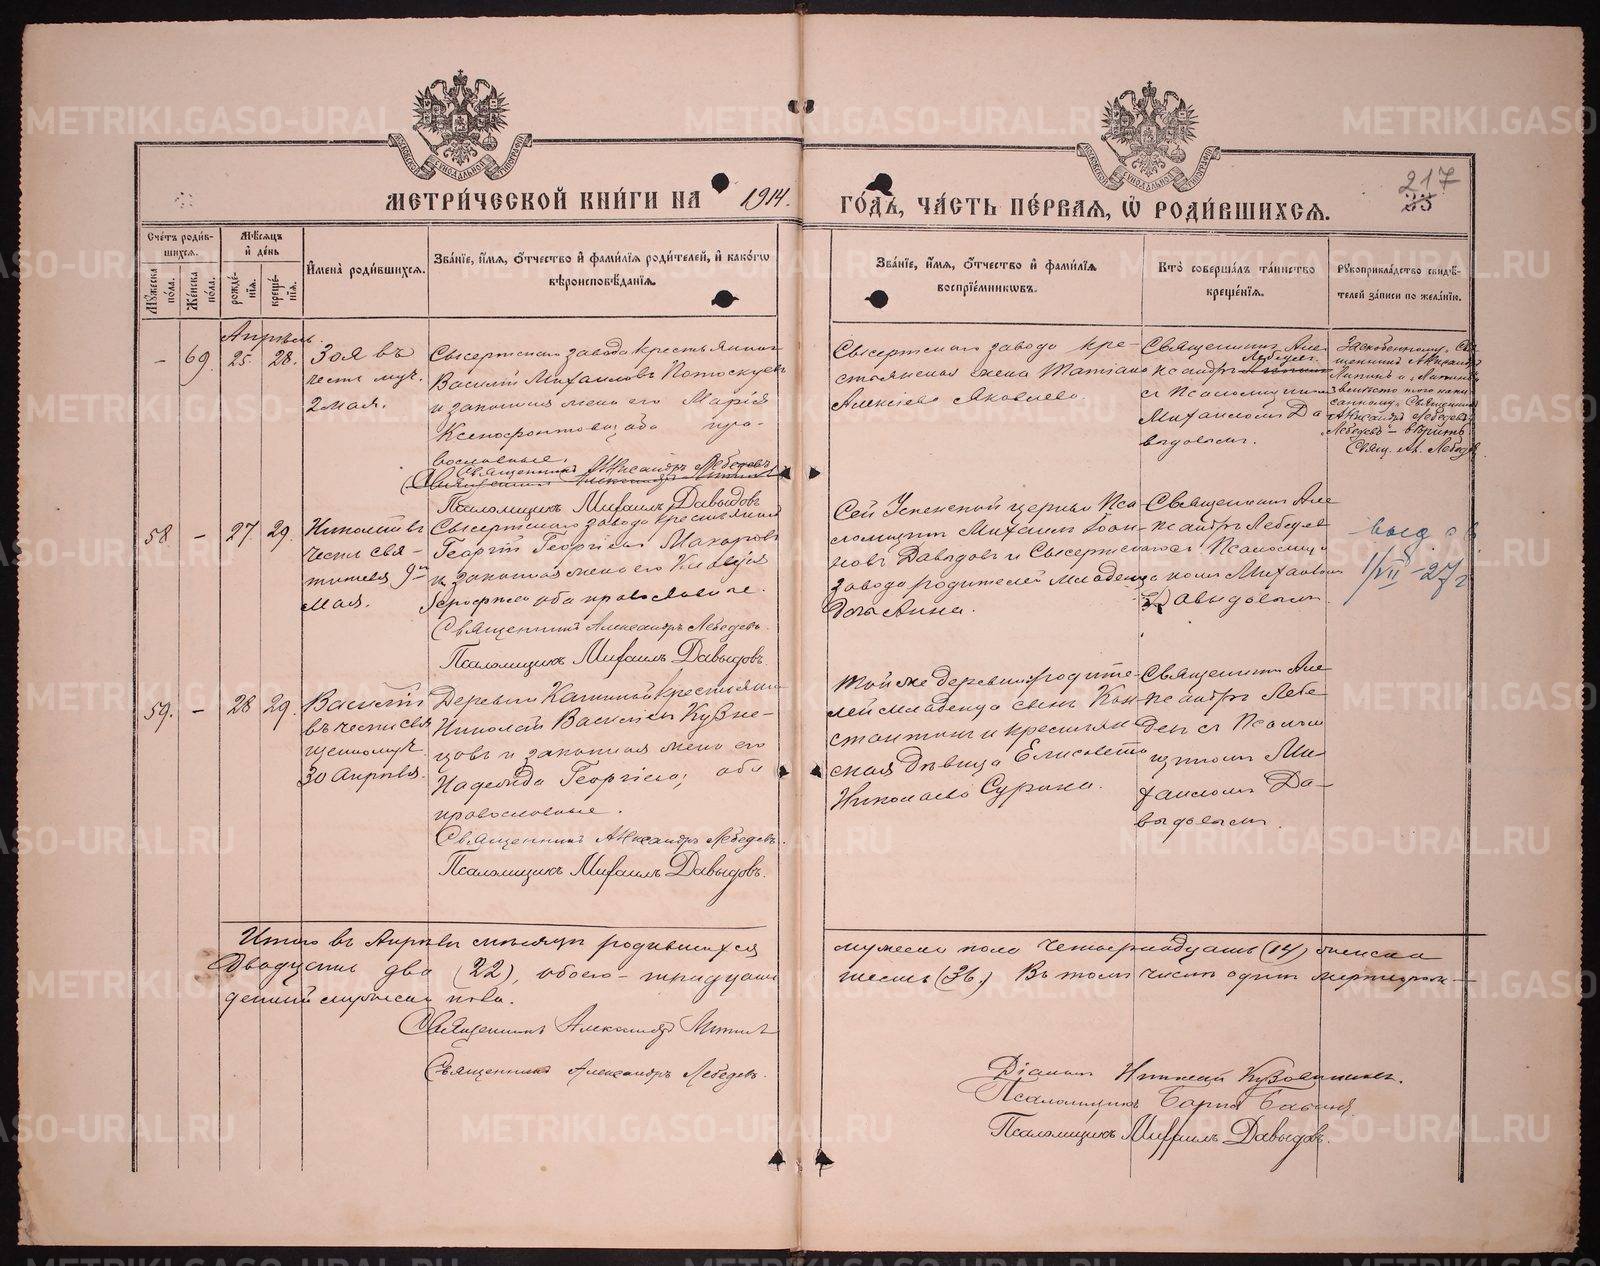 МЕТРИ́ЧЕСКОЙ КНИ́ГИ НА 1914.
ГО́ДЪ, ЧА́СТЬ ПЕ́РВАЯ, Ѡ РОДИ́ВШИХСЯ.
217
35
Сче́тъ роди́в-
шихся.
Мѣсяцъ
и де́нь
Мꙋжеска по́ла.
Же́нска по́ла.
рожде́-
нїя.
креще́-
нїя.
Имена̀ роди́вшихся.
Зва́нїе, и́мя, ѻтчество и фами́лїя роди́телей, и како́гѡ
вѣроисповѣ́данїя.
Зва́нїе, и́мя, ѻтчество и фами́лїя
воспрїе́мникѡвъ.
Кто̀ соверша́лъ та́инство
креще́нїя.
Рꙋкоприкла́дство свидѣ́-
телей за́писи по жела́нїю.
Апрѣль.
– 69. 25. 28.
Зоя въ
честь муч.
2 мая.
Сысертскаго завода крестьянинъ
Василій Михаиловъ Потоскуевъ
и законная жена его Марія
Ксенофонтова, оба пра-
вославные.
Священникъ Александръ Лебедевъ
Псаломщикъ Михаилъ Давыдовъ
Сысертскаго завода кре-
стьянская жена Татіана
Алексіева Яковлева.
Священникъ Але-
ксандръ Лебедев
с Псаломщикомъ
Михаиломъ Да-
выдовым.
Зачеркнутому „Свя-
щенникъ Александръ
написанному „Священникъ
Александръ Лебедевъ
Лебедевъ“ – вѣрить.
Свящ. Ал. Лебедев
58. – 27 29.
Николай въ
честь свя-
тителя 9го
мая.
Сысертскаго завода крестьянинъ
Георгій Георгіевъ Макаровъ
и законная жена его Клавдія
оба православные.
Священникъ Александръ Лебедевъ.
Псаломщикъ Михаилъ Давыдовъ.
Сей Успенской церкви Пса-
ломщикъ Михаилъ Іоан-
новъ Давыдовъ и Сысертскаго
завода родителей младенца
дочь Анна.
Священникъ Але-
ксандръ Лебедев
с Псаломщи-
комъ Михаиломъ
Давыдовым.
выд. св.
1/VII – 27 г
59. – 28 29.
Василій
въ честь свя
щенномуч.
30 Апрѣля.
Деревни Кашиной крестьянинъ
Николай Васильевъ Кузне-
цовъ и законная жена его
Надежда Георгіева, оба
православные.
Священникъ Александръ Лебедевъ.
Псаломщикъ Михаилъ Давыдовъ.
Той же деревни родите-
лей младенца сынъ Кон-
стантинъ и крестьян
ская дѣвица Елисавета
Николаева Сурина.
Священникъ Але-
ксандръ Лебе-
девъ с Псалом-
щикомъ Ми-
хаиломъ Да-
выдовым.
Итого въ Апрѣлѣ мѣсяцѣ родившихся
мужеска пола четырнадцать (14) женска
двадцать два (22), обоего – тридцать
шесть (36.) Въ томъ числѣ одинъ мертворож-
денный мужеска пола.
Священникъ Александръ
Священникъ Александръ Лебедевъ.
Діаконъ Николай
Псаломщикъ
Псаломщикъ Михаилъ Давыдовъ.